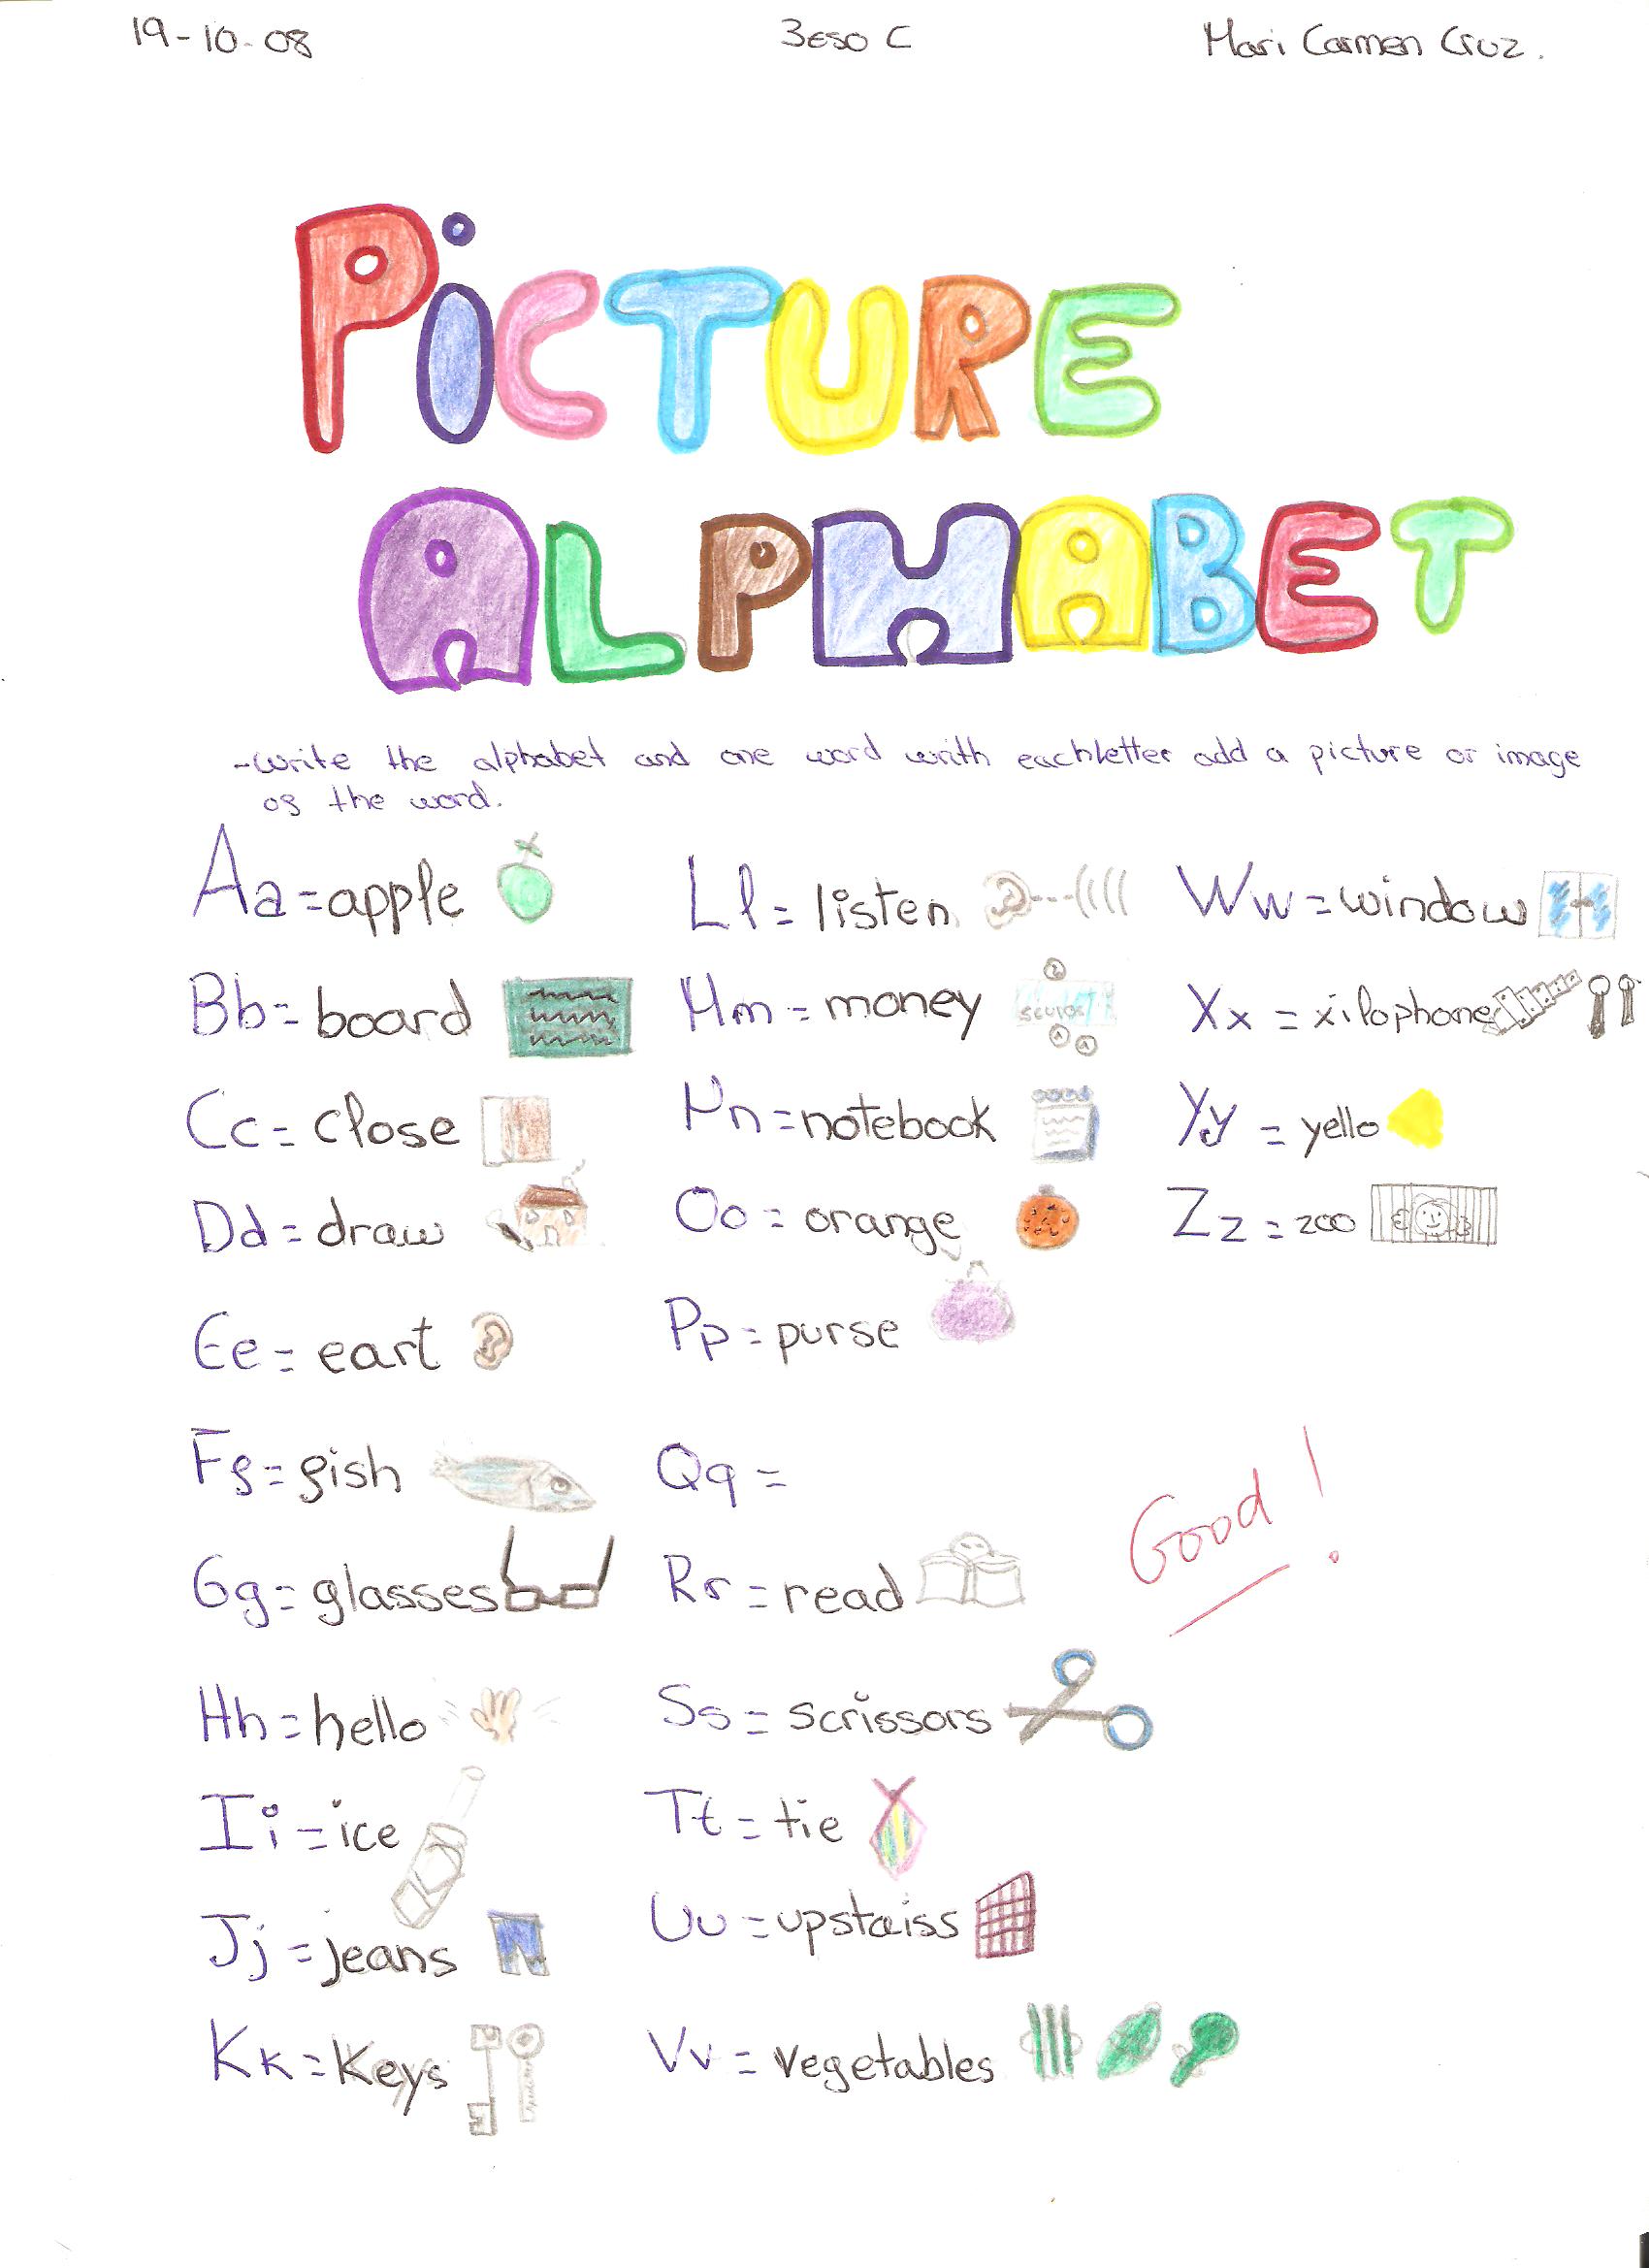 19-10-08
3eso C
Mari Carmen Cruz.
PiCTURE
ALPHABET
-Write the alphabet and one word writh eachletter add a picture or image
of the word.
Aa=apple
Bb=board
Cc=close
Dd=draw
Ee=eart
Ff=fish
Gg=glasses
Hh=hello
Ii=ice
Jj=jeans
Kk=Keys
Ll=listen
Mm=money
5euros
Nn=notebook
Oo=orange
Pp=purse
Qq=
Rr=read
Ss=scrissors
Tt=tie
Uu=upstaiss
Vv=vegetables
Ww=window
Xx=xilophone
Yy=yello
Zz=zoo
Good!